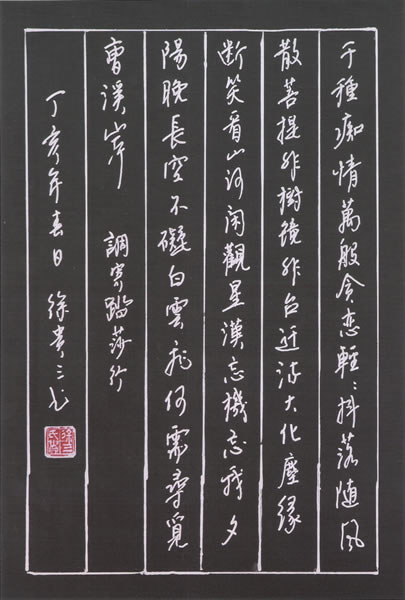 千種痴情萬般貪恋輕々抖落随風
散菩提非樹鏡非台大化塵緣
断笑看山河闲觀星漢忘機忘我夕
陽晚長空不礙白雲飛何需尋覓
曹溪岸 調寄踏莎行
丁亥年春日 徐贵三书